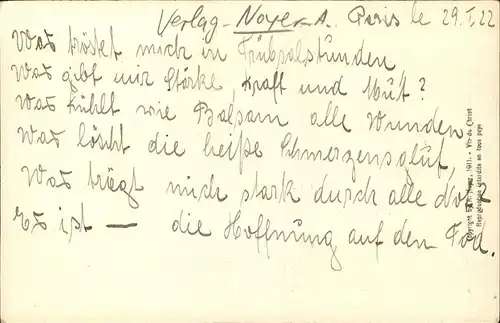 Verlag - Noyer - A. Paris le 29.I.22
Was tröstet mich in Trübsalstunden
Was gibt mir Stärke, Kraft und Mut?
Was kühlt wie Balsam alle Wunden
Was löscht die heiße Schmerzensglut,
Was trägt mich stark durch alle Not,
Es ist — die Hoffnung auf den Tod.
Copyright 1911. - Vie du Christ
Reproduction interdite en tous pays